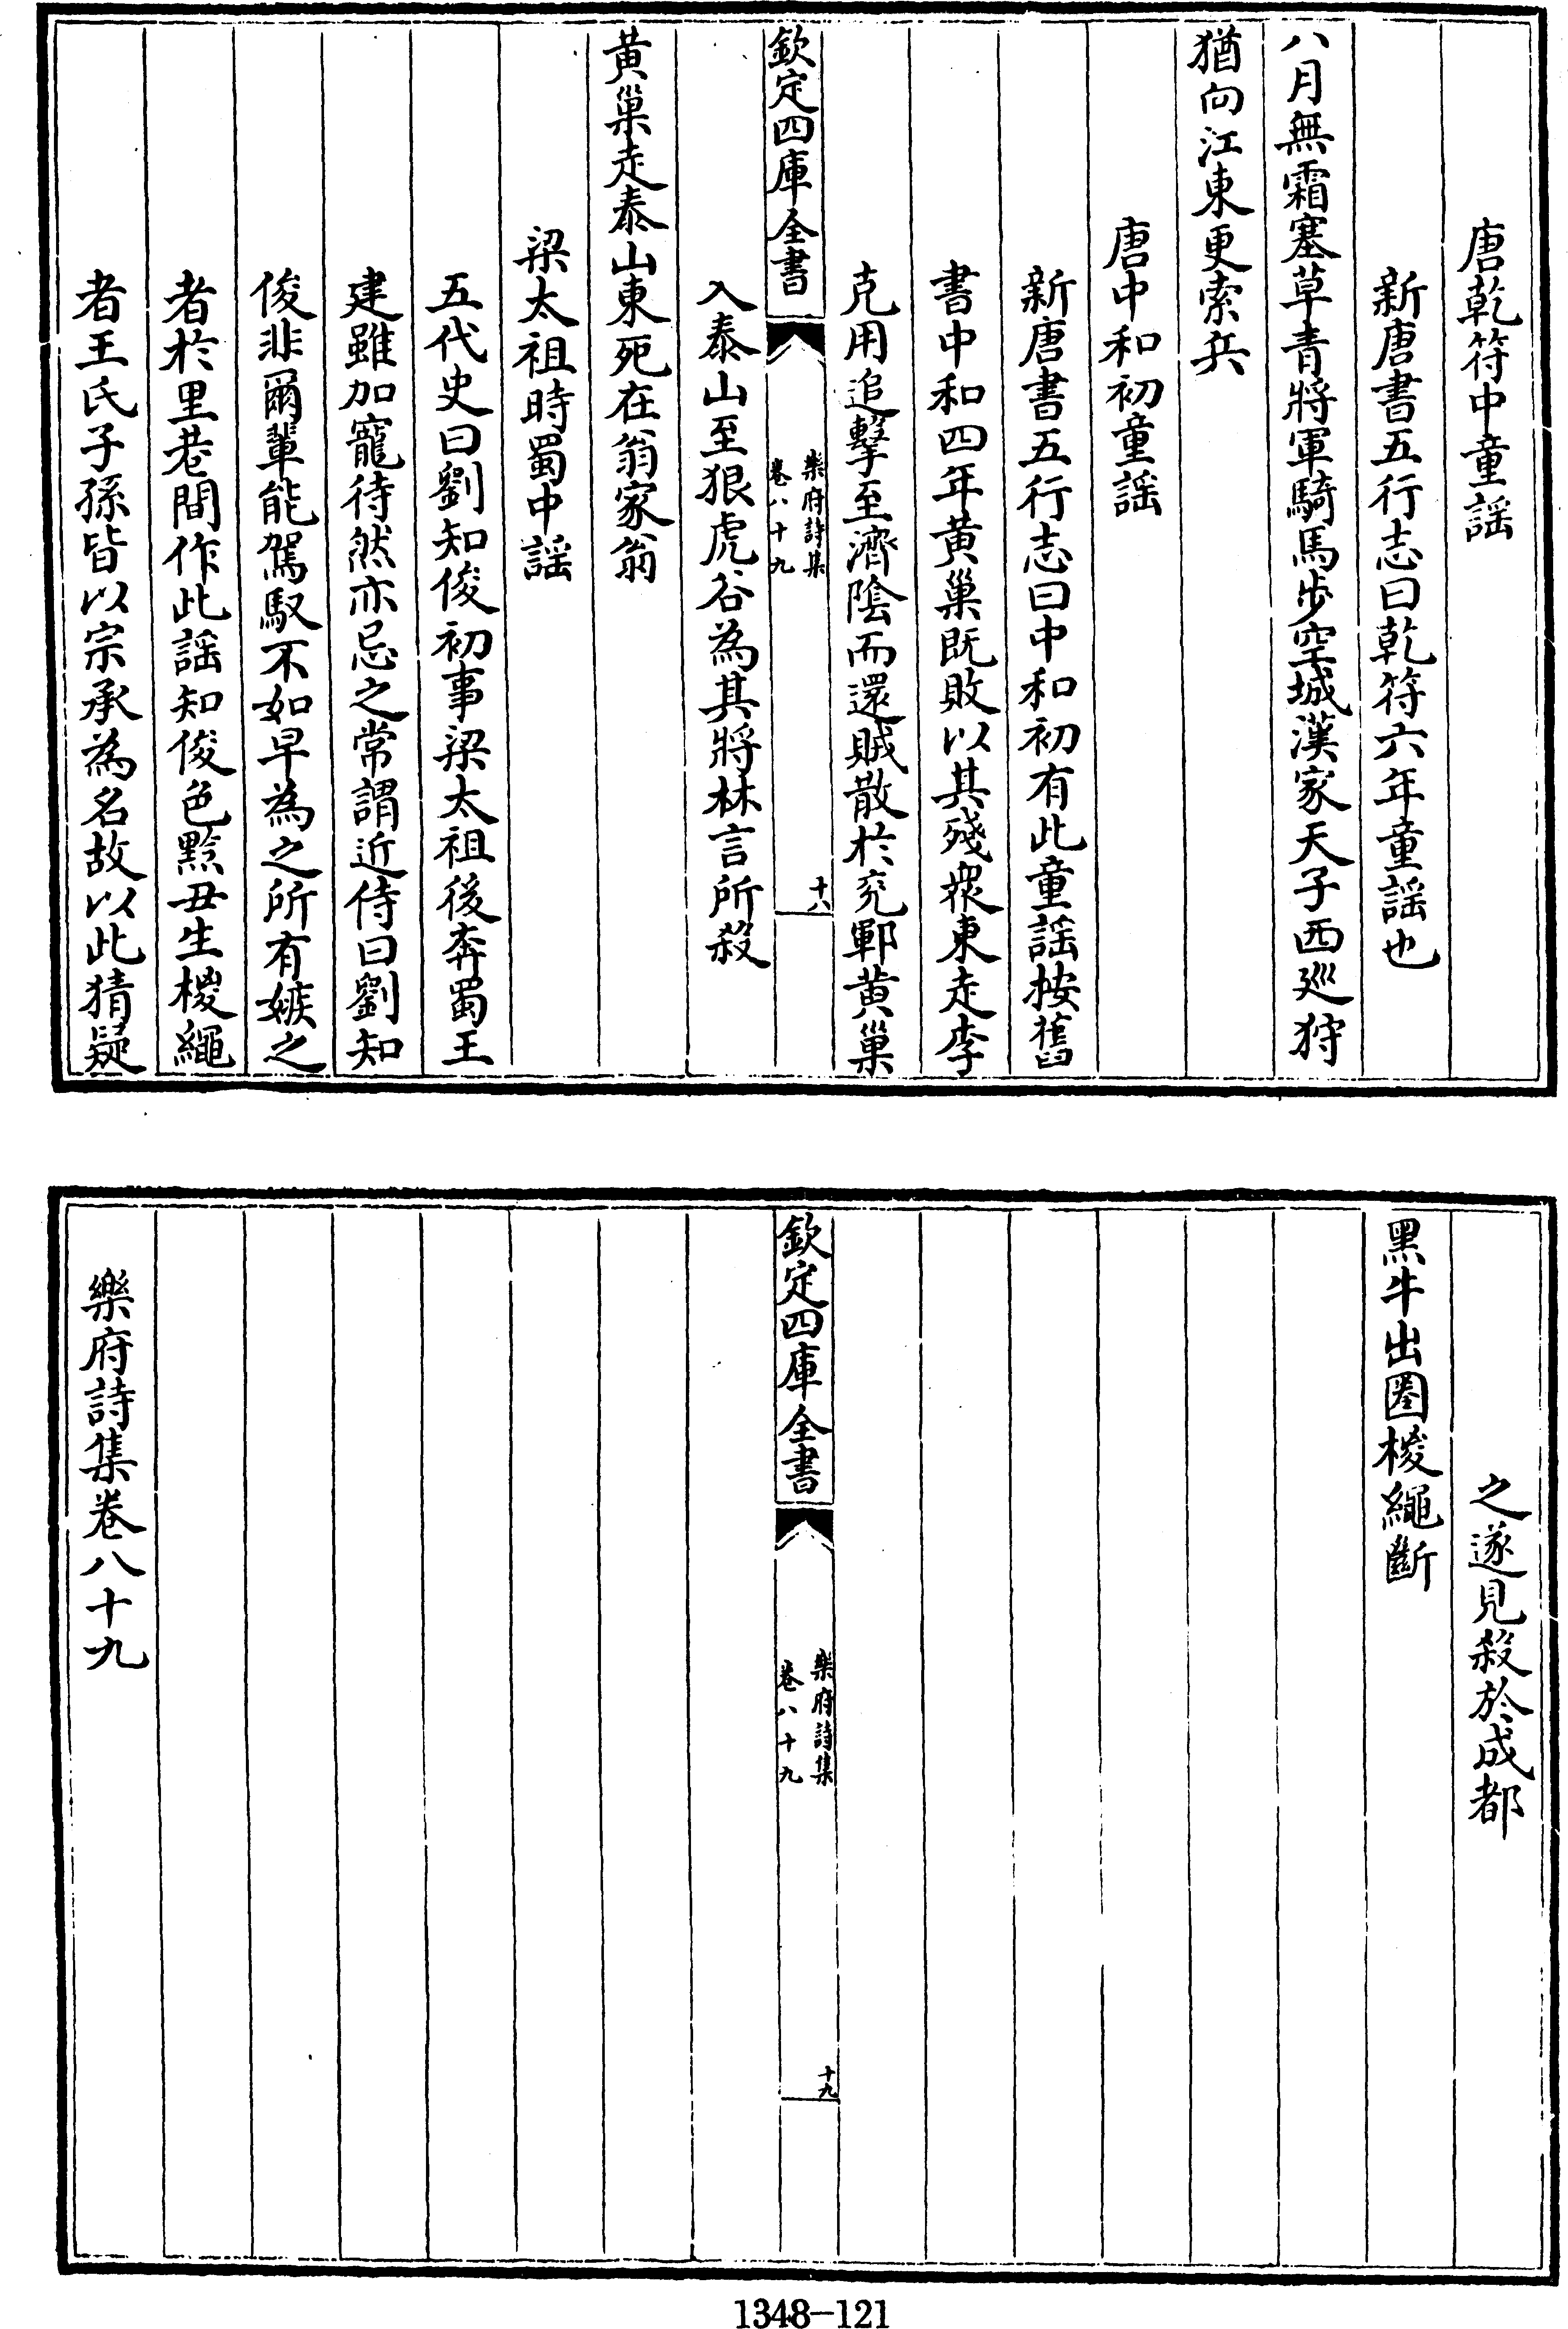 唐乾符中童謡
新唐書五行志曰乾符六年童謡也
八月無霜塞草青將軍騎馬步空城漢家天子西廵狩
猶向江東更索兵
唐中和初童謡
新唐書五行志曰中和初有此童謡按舊
書中和四年黄巢既敗以其殘衆東走李
克用追擊至濟隂而還賊散於兖鄆黄巢
欽定四庫全書
樂府詩集
卷八十九
十八
入泰山至狠虎谷為其將林言所殺
黄巢走泰山東死在翁家翁
梁太祖時蜀中謡
五代史曰劉知俊初事梁太祖後奔蜀王
建雖加寵待然亦忌之常謂近侍曰劉知
俊非爾輩能駕馭不如早為之所有嫉之
者於里巷間作此謡知俊色黙丑生椶繩
者王氏子孫皆以宗承為名故以此猜疑
之遂見殺於成都
黑牛出圈椶繩斷
欽定四庫全書
樂府詩集
卷八十九
十九
樂府詩集卷八十九
1348-121